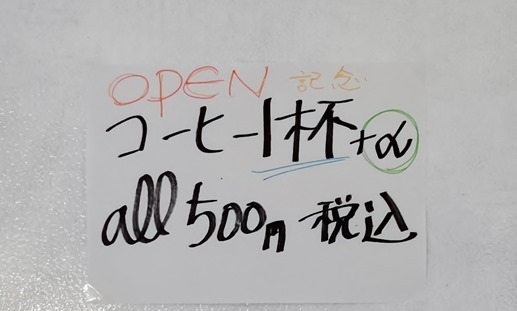 OPEN 記念
コーヒー1杯+α
all 500円 税込